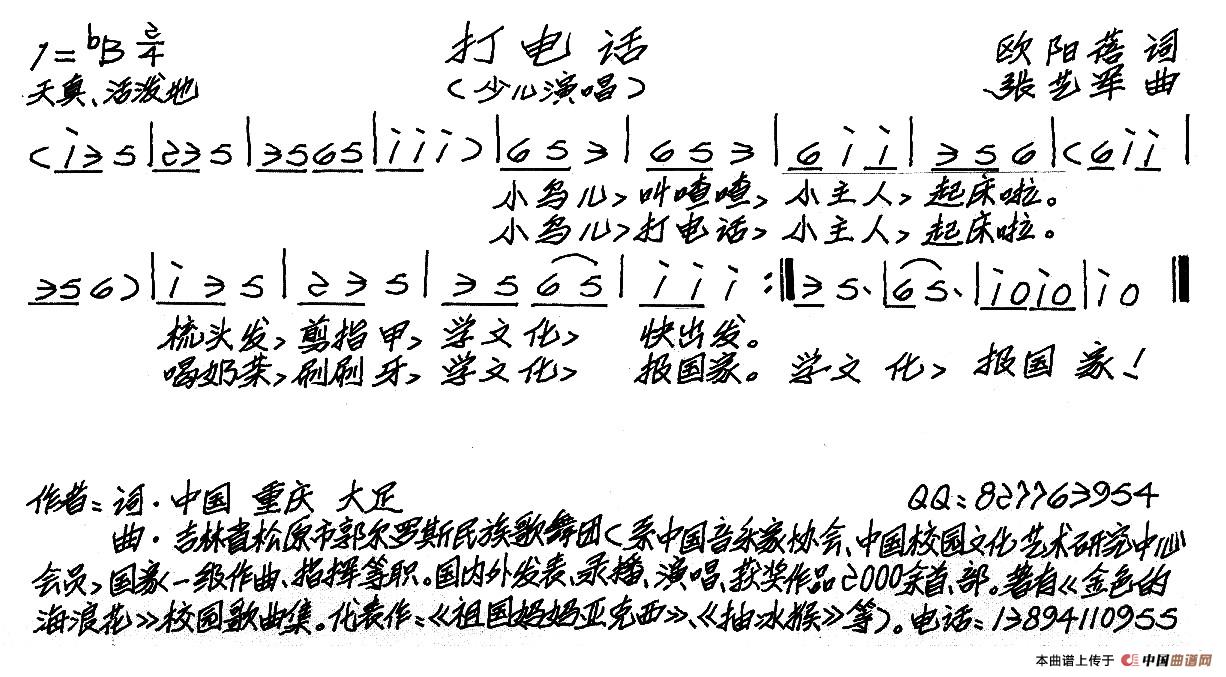 1=ᵇB 2/4 打电话 欧阳蓓 词
天真、活泼地 (少儿演唱) 张艺军 曲
(i 3 5 | 2 3 5 | 3 5 6 5 | i i i) | 6 5 3 | 6 5 3 | 6 i i | 3 5 6 | (6 i i |
小鸟儿,叫喳喳,小主人,起床啦。
小鸟儿,打电话,小主人,起床啦。
3 5 6) | i 3 5 | 2 3 5 | 3 5 6 5 | i i i :‖ 3 5、| 6 5、| i 0 i 0 | i 0 ‖
梳头发,剪指甲,学文化,快出发。
喝奶茶,刷刷牙,学文化,报国家。学文化,报国家!
作者:词·中国 重庆 大足 QQ:827763954
曲·吉林省松原市郭尔罗斯民族歌舞团(系中国音乐家协会、中国校园文化艺术研究中心
会员,国家一级作曲、指挥等职。国内外发表、录播、演唱、获奖作品2000余首、部。著有《金色的
海浪花》校园歌曲集。代表作:《祖国妈妈亚克西》、《抽冰猴》等)。电话:13894110955
本曲谱上传于 中国曲谱网